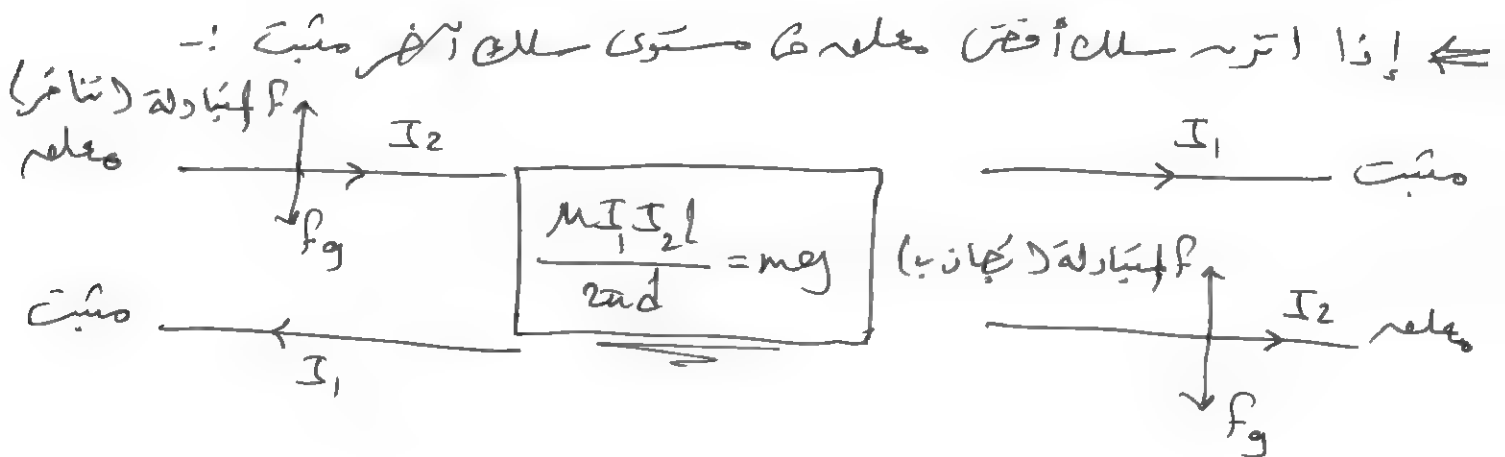 ⇐ إذا اتزن سلك أفقى معلق فى مستوى سلك آخر مثبت :-
F المتبادلة (تنافر)
معلق I₂ I₁ مثبت
Fg
μI₁I₂l / 2πd = mg
F المتبادلة (تجاذب)
مثبت I₁ I₂ معلق
Fg